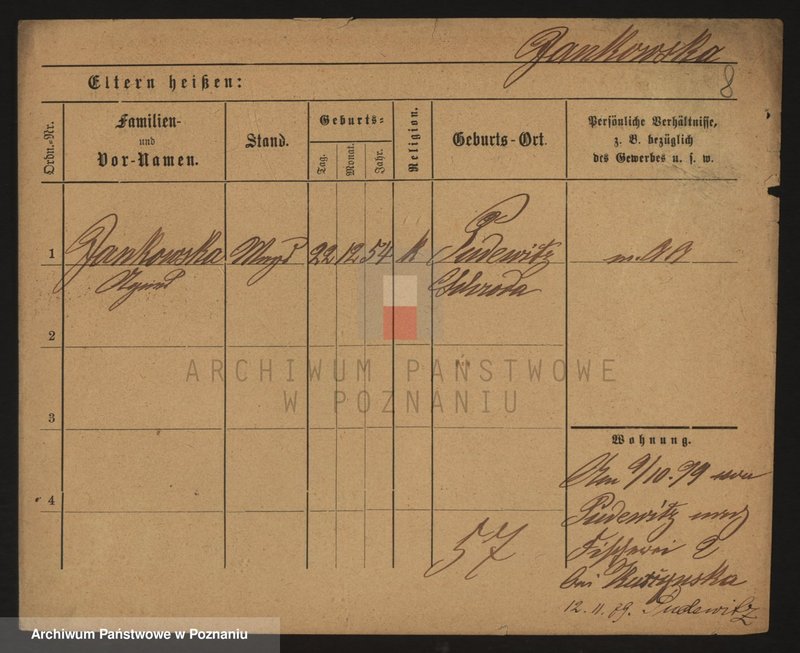 Jankowska
8
Eltern heißen:
Ordn.-Nr.
Familien-
und
Vor-Namen.
Stand.
Geburts-
Tag.
Monat.
Jahr.
Religion.
Geburts-Ort.
Persönliche Verhältnisse,
z. B. bezüglich
des Gewerbes u. s. w.
1 Jankowska Magd 22 12 54 k Pudewitz
Schroda
2
3
4
ARCHIWUM PAŃSTWOWE
W POZNANIU
Wohnung.
Am 9/10.79 von
Pudewitz nach
Fischerei 2
bei
12.11.79. Pudewitz
57
Archiwum Państwowe w Poznaniu